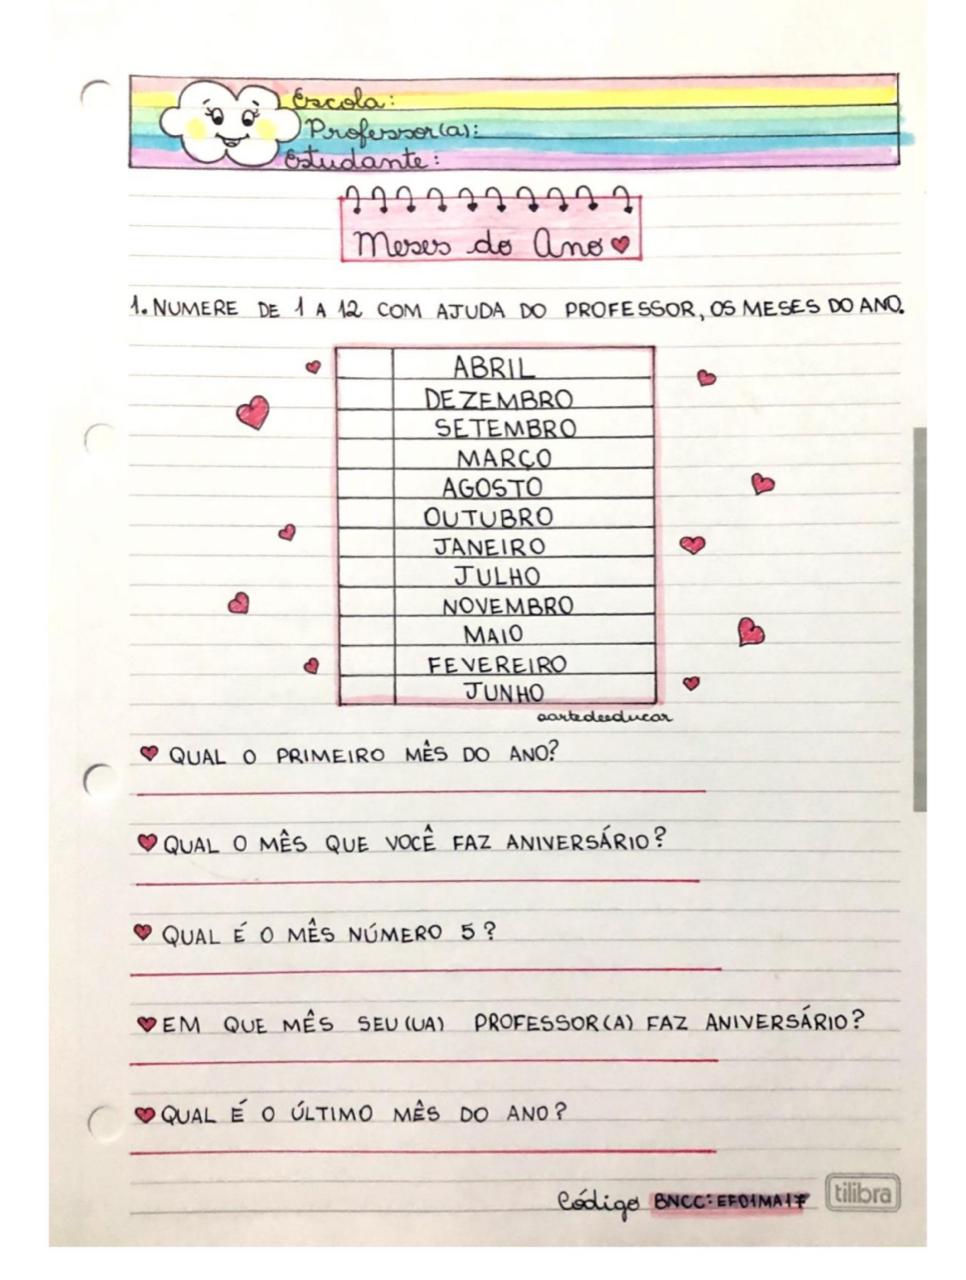 Escola:
Professor(a):
Estudante:
Meses do Ano
1. NUMERE DE 1 A 12 COM AJUDA DO PROFESSOR, OS MESES DO ANO.
ABRIL
DEZEMBRO
SETEMBRO
MARÇO
AGOSTO
OUTUBRO
JANEIRO
JULHO
NOVEMBRO
MAIO
FEVEREIRO
JUNHO
aartedeeducar
QUAL O PRIMEIRO MÊS DO ANO?
QUAL O MÊS QUE VOCÊ FAZ ANIVERSÁRIO?
QUAL É O MÊS NÚMERO 5?
EM QUE MÊS SEU(UA) PROFESSOR(A) FAZ ANIVERSÁRIO?
QUAL É O ÚLTIMO MÊS DO ANO?
Código BNCC: EF01MA17
tilibra